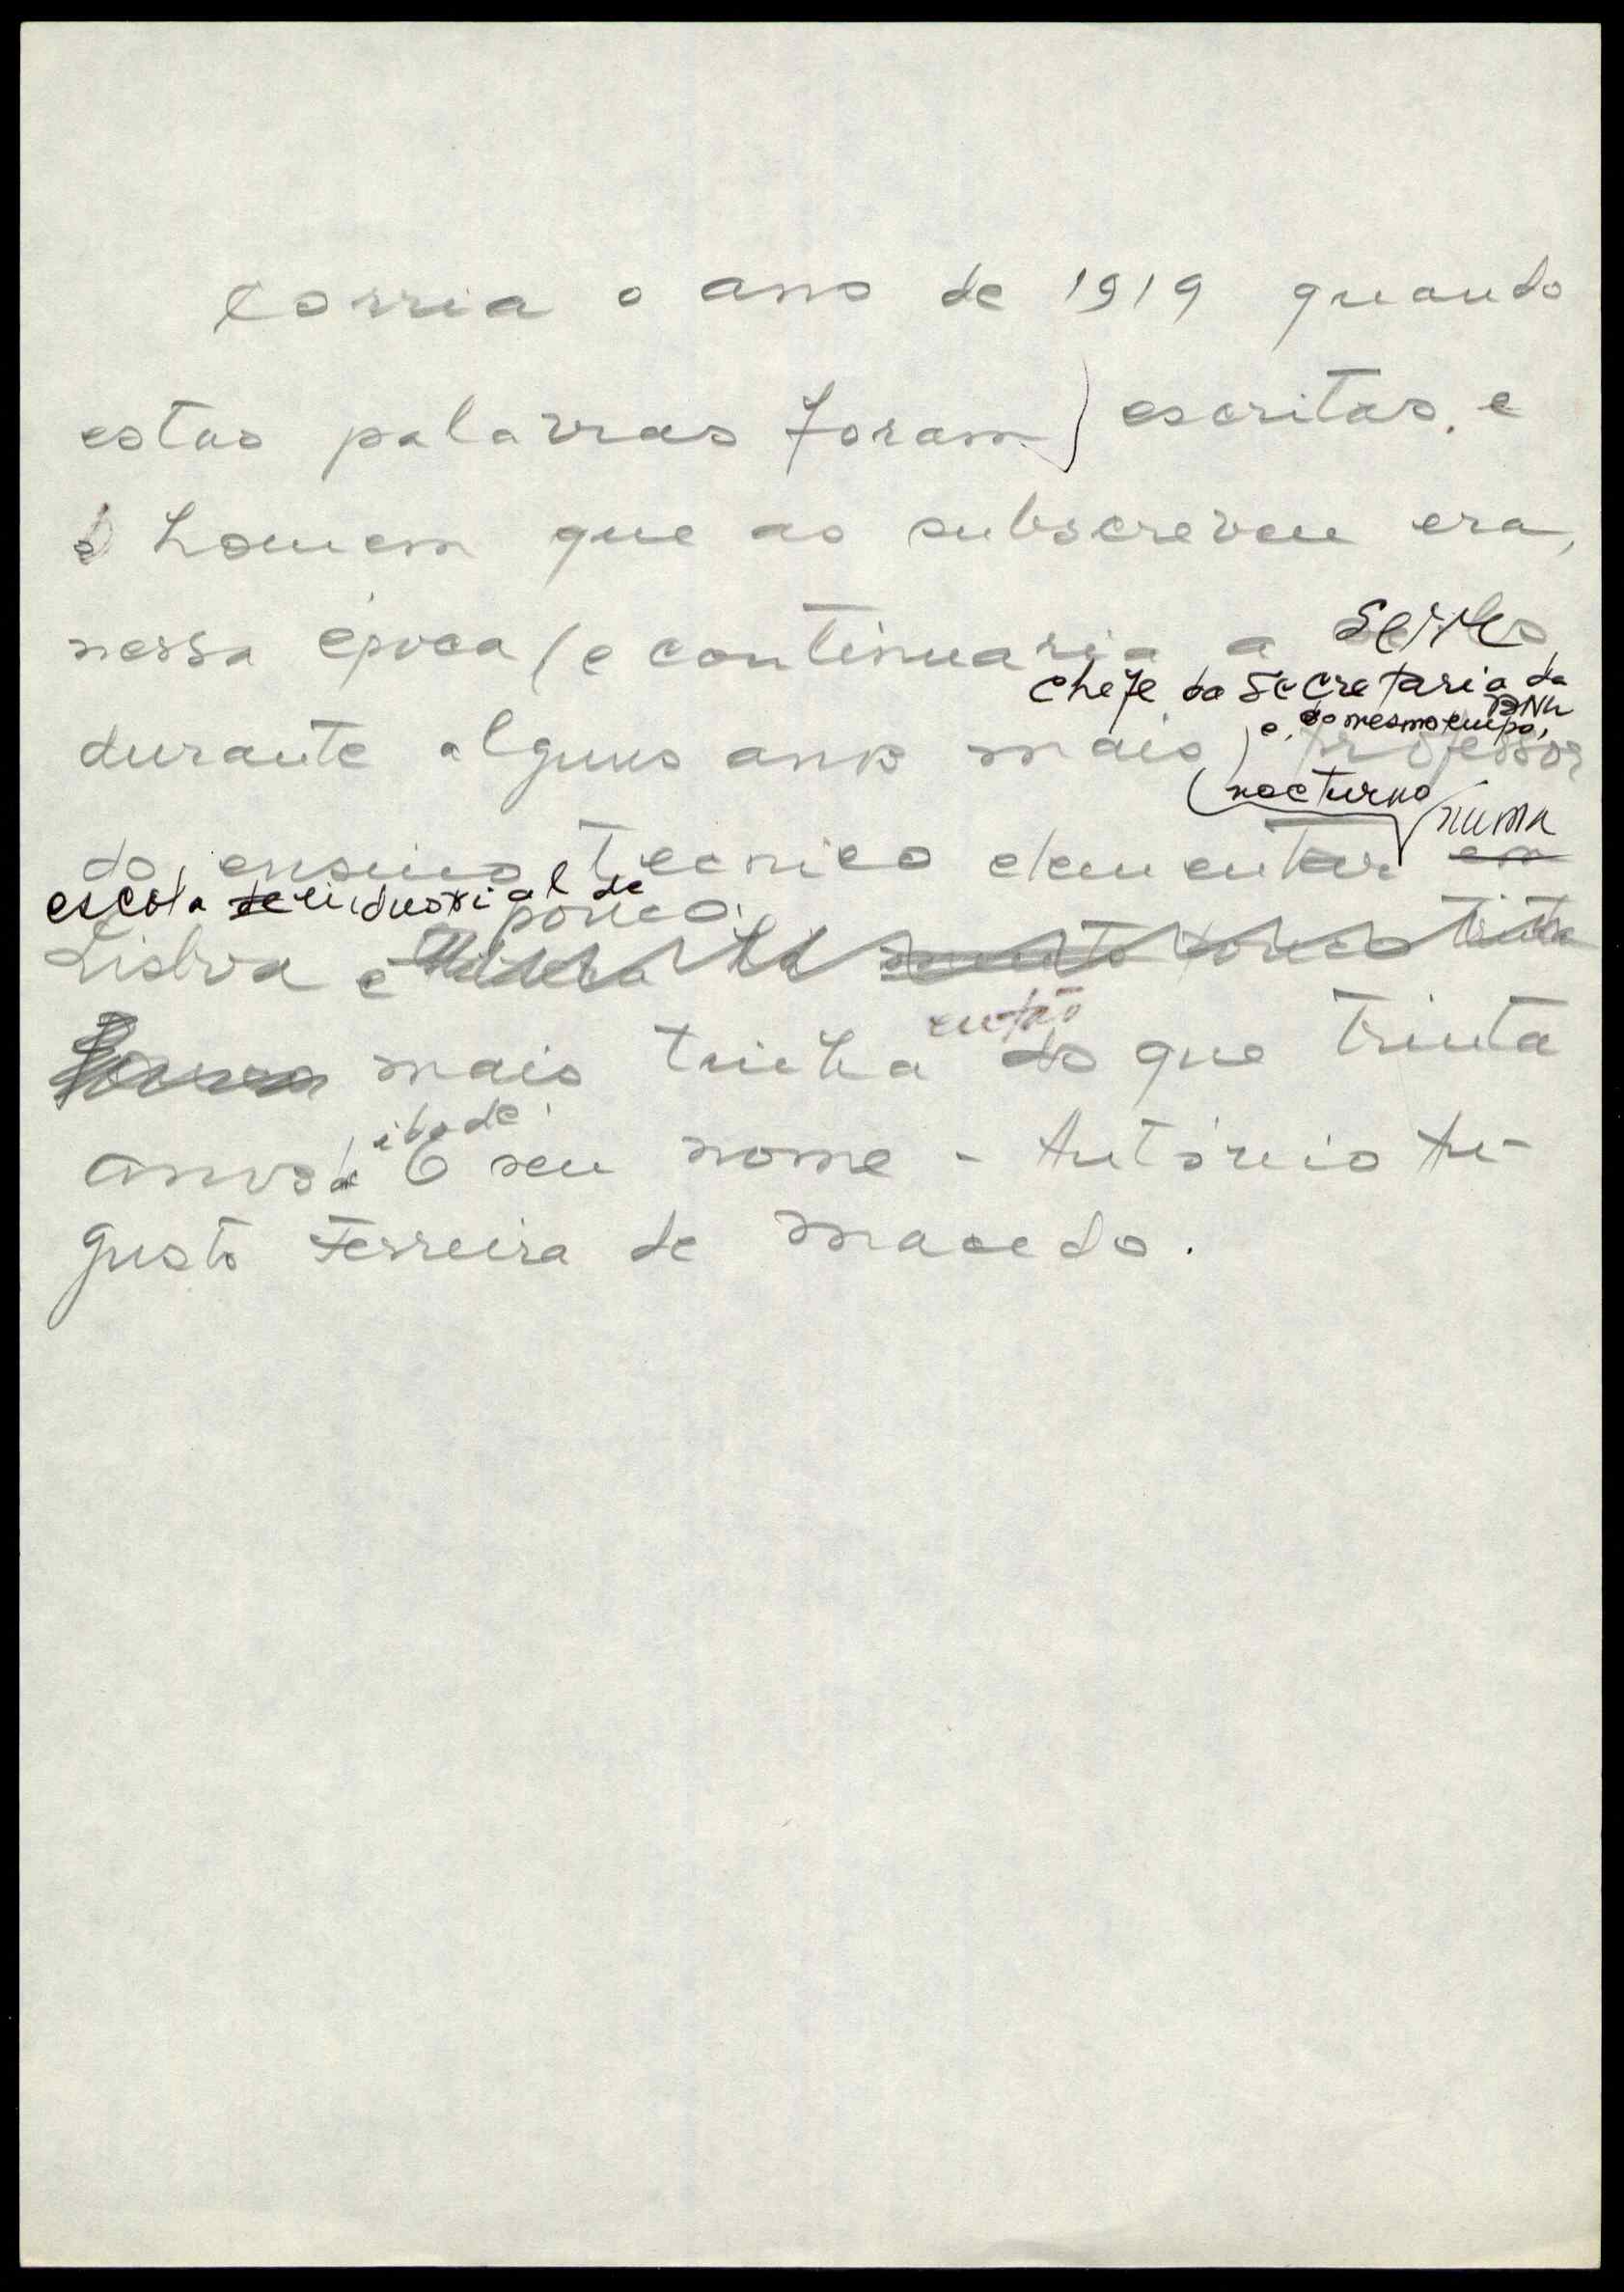 Corria o ano de 1919 quando
estas palavras foram) escritas. e
o homem que as subscreveu era,
nessa época (e continuaria a sê-lo
chefe da Secretaria da
BNU
e, ao mesmo tempo,
durante alguns anos mais) professor
(nocturno
numa
do ensino técnico elementar em
escola de industrial de
pouco
Lisboa e tinha pouco trinta
então
mais tinha do que trinta
idade
anos de O seu nome - António Au-
gusto Ferreira de Macedo.